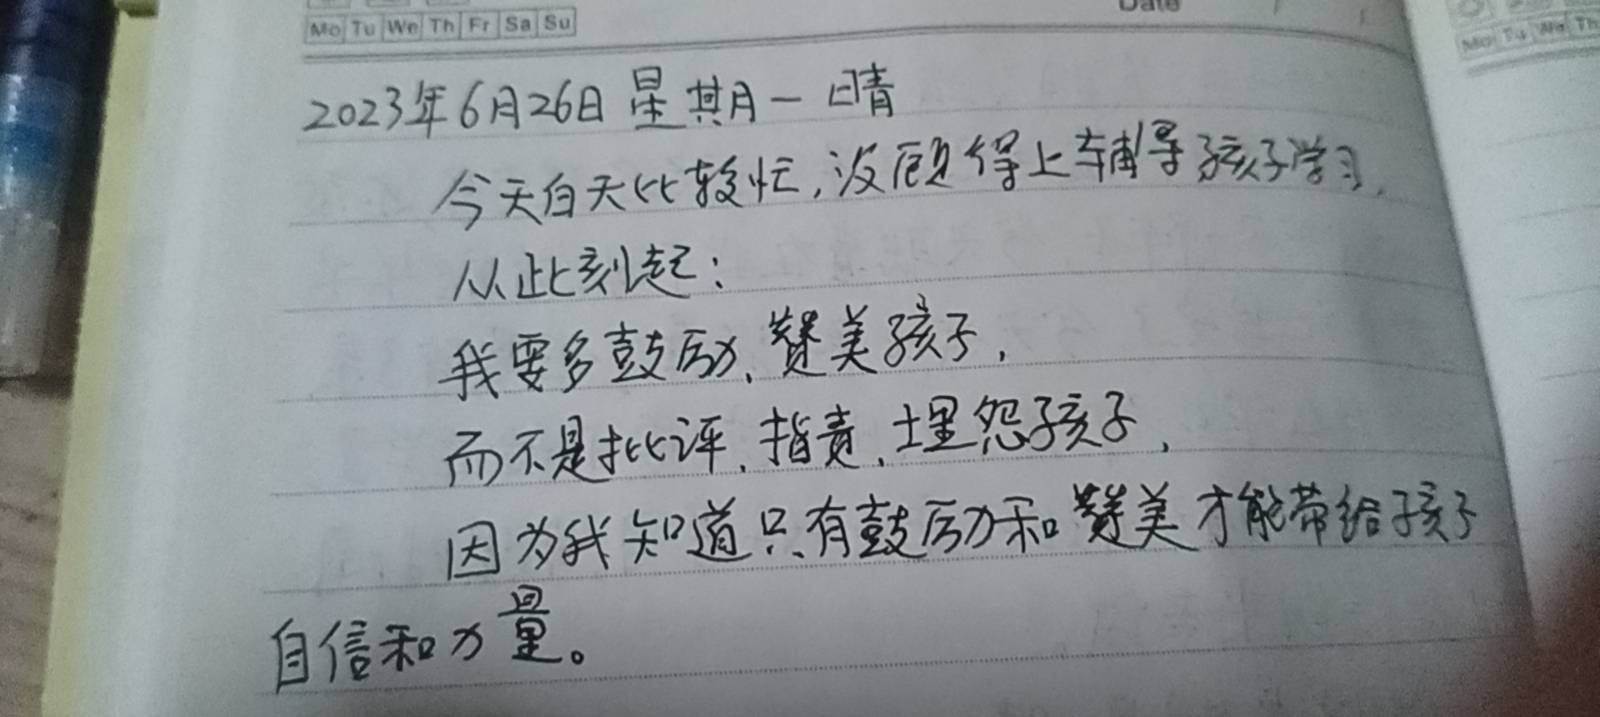 Mo Tu We Th Fr Sa Su
Date
Mo Tu We Th
2023年6月26日 星期一 晴
今天白天比较忙,没顾得上辅导孩子学习,
从此刻起:
我要多鼓励、赞美孩子,
而不是批评、指责、埋怨孩子,
因为我知道只有鼓励和赞美才能带给孩子
自信和力量。